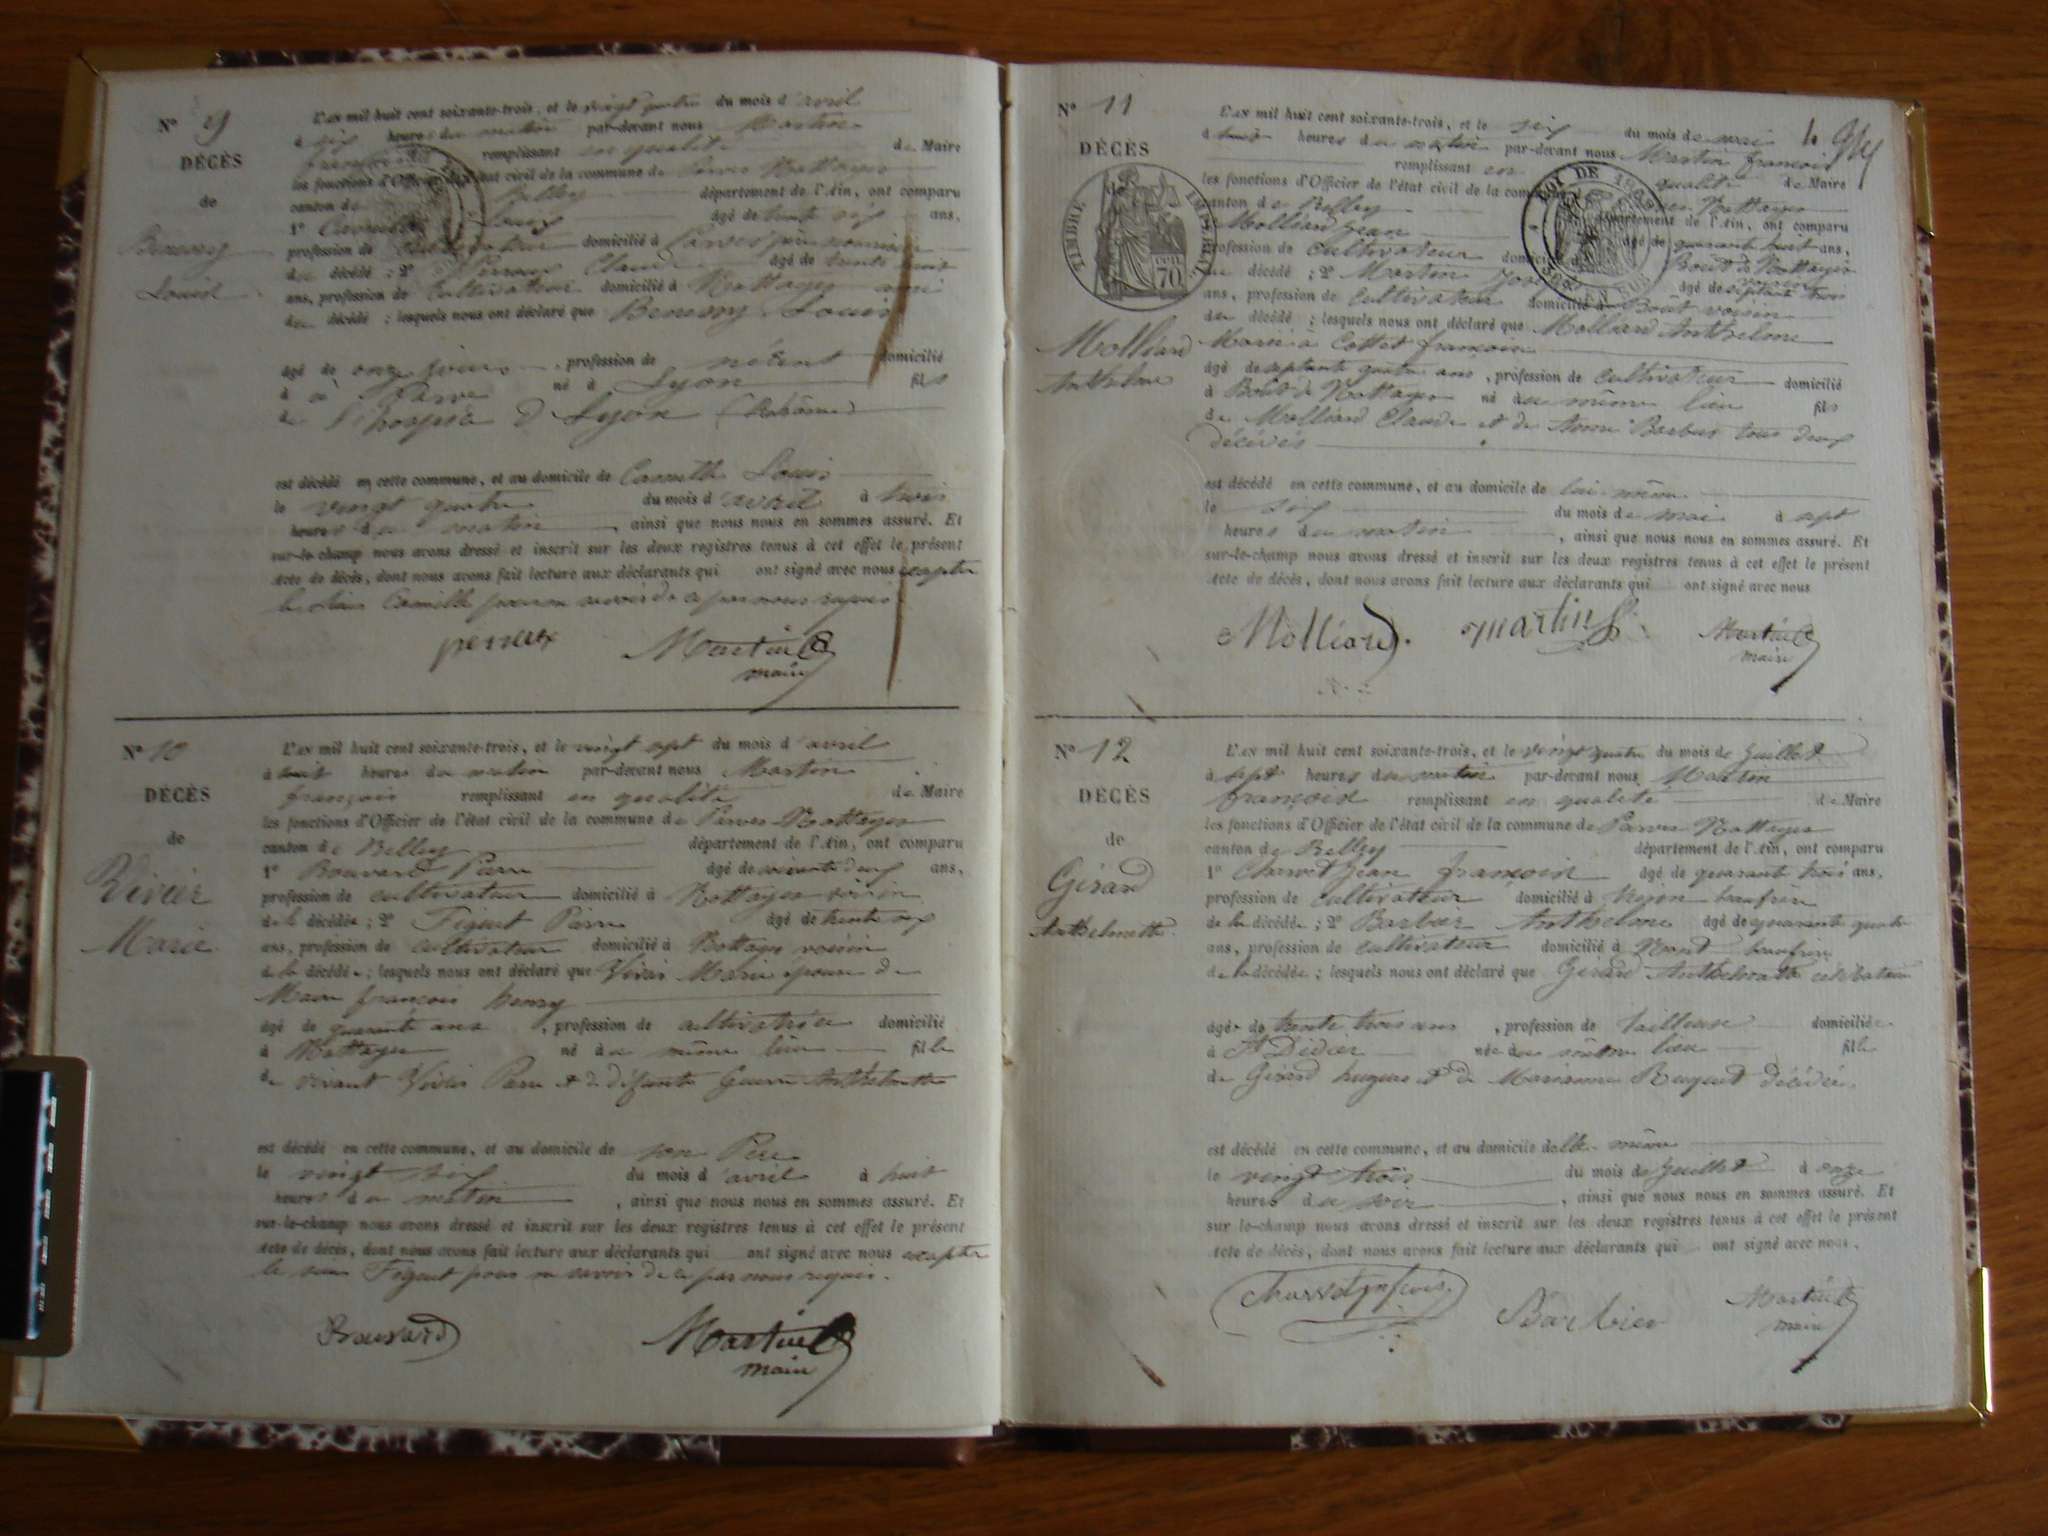 N° 9
DÉCÈS
de
Louis
L'an mil huit cent soixante-trois, et le vingt quatre du mois d'avril
à six heures du matin par-devant nous Martin
françois remplissant en qualité de Maire
les fonctions d'Officier de l'état civil de la commune de Parves Nattages
canton de Belley département de l'Ain, ont comparu
1° Louis âgé de trente six ans,
profession de Cultivateur domicilié à Parves père nourricier
du décédé ; 2° Claude âgé de trente huit
ans, profession de Cultivateur domicilié à Nattages ami
du décédé ; lesquels nous ont déclaré que Louis
âgé de onze jours, profession de néant domicilié
à Parve né à Lyon fils
de l'hospice de Lyon (Rhône)
est décédé en cette commune, et au domicile de Louis
le vingt quatre du mois d'avril à trois
heures du matin, ainsi que nous nous en sommes assuré. Et
sur-le-champ nous avons dressé et inscrit sur les deux registres tenus à cet effet le présent
Acte de décès, dont nous avons fait lecture aux déclarants qui ont signé avec nous excepté
le sieur pour ne savoir de ce par nous requis.
perraux Martin
maire
N° 10
DÉCÈS
de
Vivier
Marie
L'an mil huit cent soixante-trois, et le vingt sept du mois d'avril
à huit heures du matin par-devant nous Martin
françois remplissant en qualité de Maire
les fonctions d'Officier de l'état civil de la commune de Parves Nattages
canton de Belley département de l'Ain, ont comparu
1° Bouvard Pierre âgé de ans,
profession de cultivateur domicilié à Nattages voisin
de la décédée ; 2° Figuet Pierre âgé de trente six
ans, profession de cultivateur domicilié à Nattages voisin
de la décédée ; lesquels nous ont déclaré que Marie épouse de
françois henry
âgé de quarante ans, profession de cultivatrice domicilié
à Nattages né au même lieu fille
de vivant Pierre et de défunte Anthelmette
est décédé en cette commune, et au domicile de son Père
le vingt six du mois d'avril à huit
heures du matin, ainsi que nous nous en sommes assuré. Et
sur-le-champ nous avons dressé et inscrit sur les deux registres tenus à cet effet le présent
Acte de décès, dont nous avons fait lecture aux déclarants qui ont signé avec nous excepté
le sieur Figuet pour ne savoir de ce par nous requis.
Bouvard Martin
maire
N° 11
DÉCÈS
de
TIMBRE IMPÉRIAL
70
Molliard
Anthelme
L'an mil huit cent soixante-trois, et le six du mois de mai
à huit heures du matin par-devant nous Martin françois
remplissant en qualité de Maire
les fonctions d'Officier de l'état civil de la commune de Parves Nattages
canton de Belley département de l'Ain, ont comparu
Molliard Jean âgé de quarante huit ans,
profession de cultivateur domicilié à Boût de Nattages
du décédé ; 2° Martin Joseph âgé de septante trois
ans, profession de cultivateur domicilié à Boût voisin
du décédé ; lesquels nous ont déclaré que Molliard Anthelme
Marié à Cottet françoise
âgé de septante quatre ans, profession de cultivateur domicilié
à Boût de Nattages né au même lieu fils
de Molliard Claude et de Anne Barbier tous deux
décédés
est décédé en cette commune, et au domicile de lui même
le six du mois de mai à sept
heures du matin, ainsi que nous nous en sommes assuré. Et
sur-le-champ nous avons dressé et inscrit sur les deux registres tenus à cet effet le présent
Acte de décès, dont nous avons fait lecture aux déclarants qui ont signé avec nous
Molliard. martin Martin
maire
N° 12
DÉCÈS
de
Gérard
Anthelmette
L'an mil huit cent soixante-trois, et le vingt quatre du mois de Juillet
à sept heures du matin par-devant nous Martin
françois remplissant en qualité de Maire
les fonctions d'Officier de l'état civil de la commune de Parves Nattages
canton de Belley département de l'Ain, ont comparu
1° Charvet Jean françois âgé de quarante trois ans,
profession de cultivateur domicilié à beaufrère
de la décédée ; 2° Barbier Anthelme âgé de quarante quatre
ans, profession de cultivateur domicilié à beaufrère
de la décédée ; lesquels nous ont déclaré que Gérard Anthelmette célibataire
âgée de trente trois ans, profession de tailleuse domiciliée
à St Didier née au même lieu fille
de Gérard hugues et de Marianne décédée.
est décédé en cette commune, et au domicile delle même
le vingt trois du mois de Juillet à onze
heures du soir, ainsi que nous nous en sommes assuré. Et
sur-le-champ nous avons dressé et inscrit sur les deux registres tenus à cet effet le présent
Acte de décès, dont nous avons fait lecture aux déclarants qui ont signé avec nous.
Barbier Martin
maire